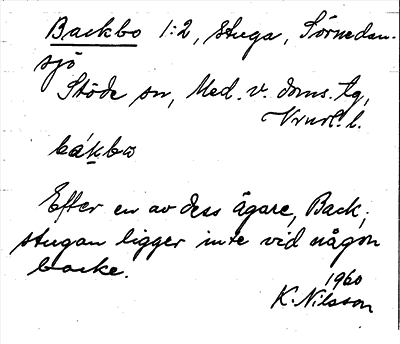 Backbo 1:2, stuga, Sörnedan-
sjö
Stöde sn, Med. v. doms. tg,
Vrnrl. l.
bákbω
Efter en av dess ägare, Back;
stugan ligger inte vid någon
backe.
1960
K. Nilsson